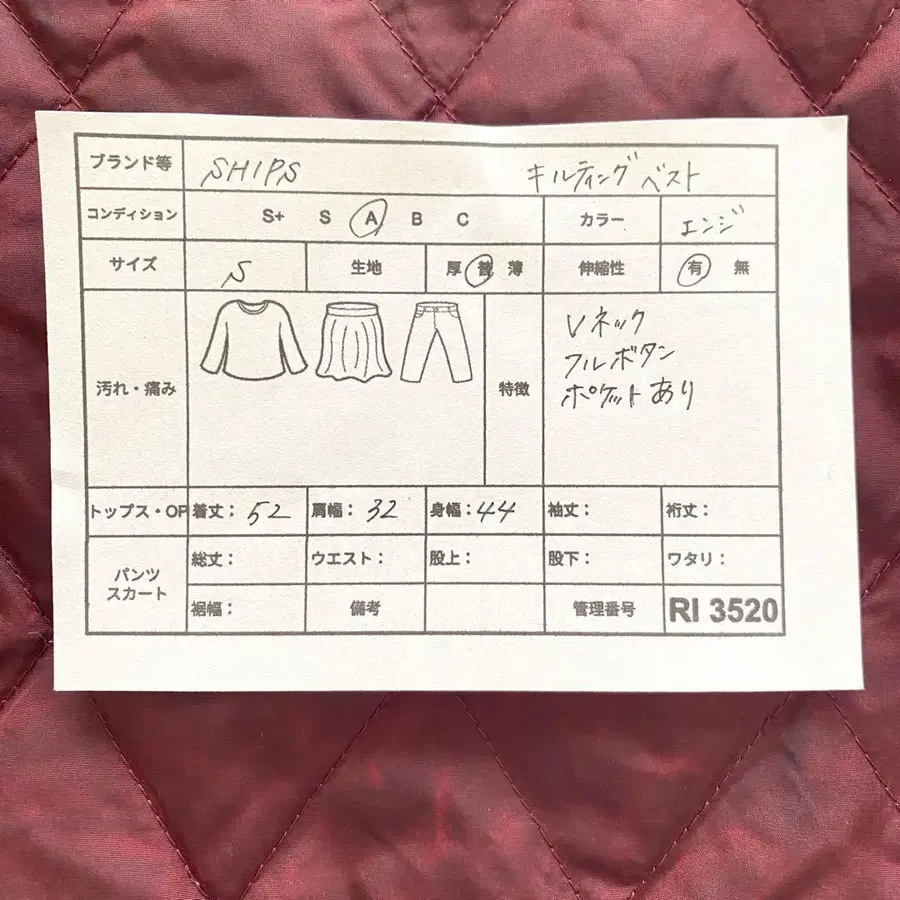 ブランド等 SHIPS キルティングベスト
コンディション S+ S A B C カラー エンジ
サイズ S 生地 厚 普 薄 伸縮性 有 無
汚れ・痛み 特徴 Vネック
フルボタン
ポケットあり
トップス・OP 着丈: 52 肩幅: 32 身幅: 44 袖丈: 裄丈:
パンツ
スカート
総丈: ウエスト: 股上: 股下: ワタリ:
裾幅: 備考 管理番号 RI 3520